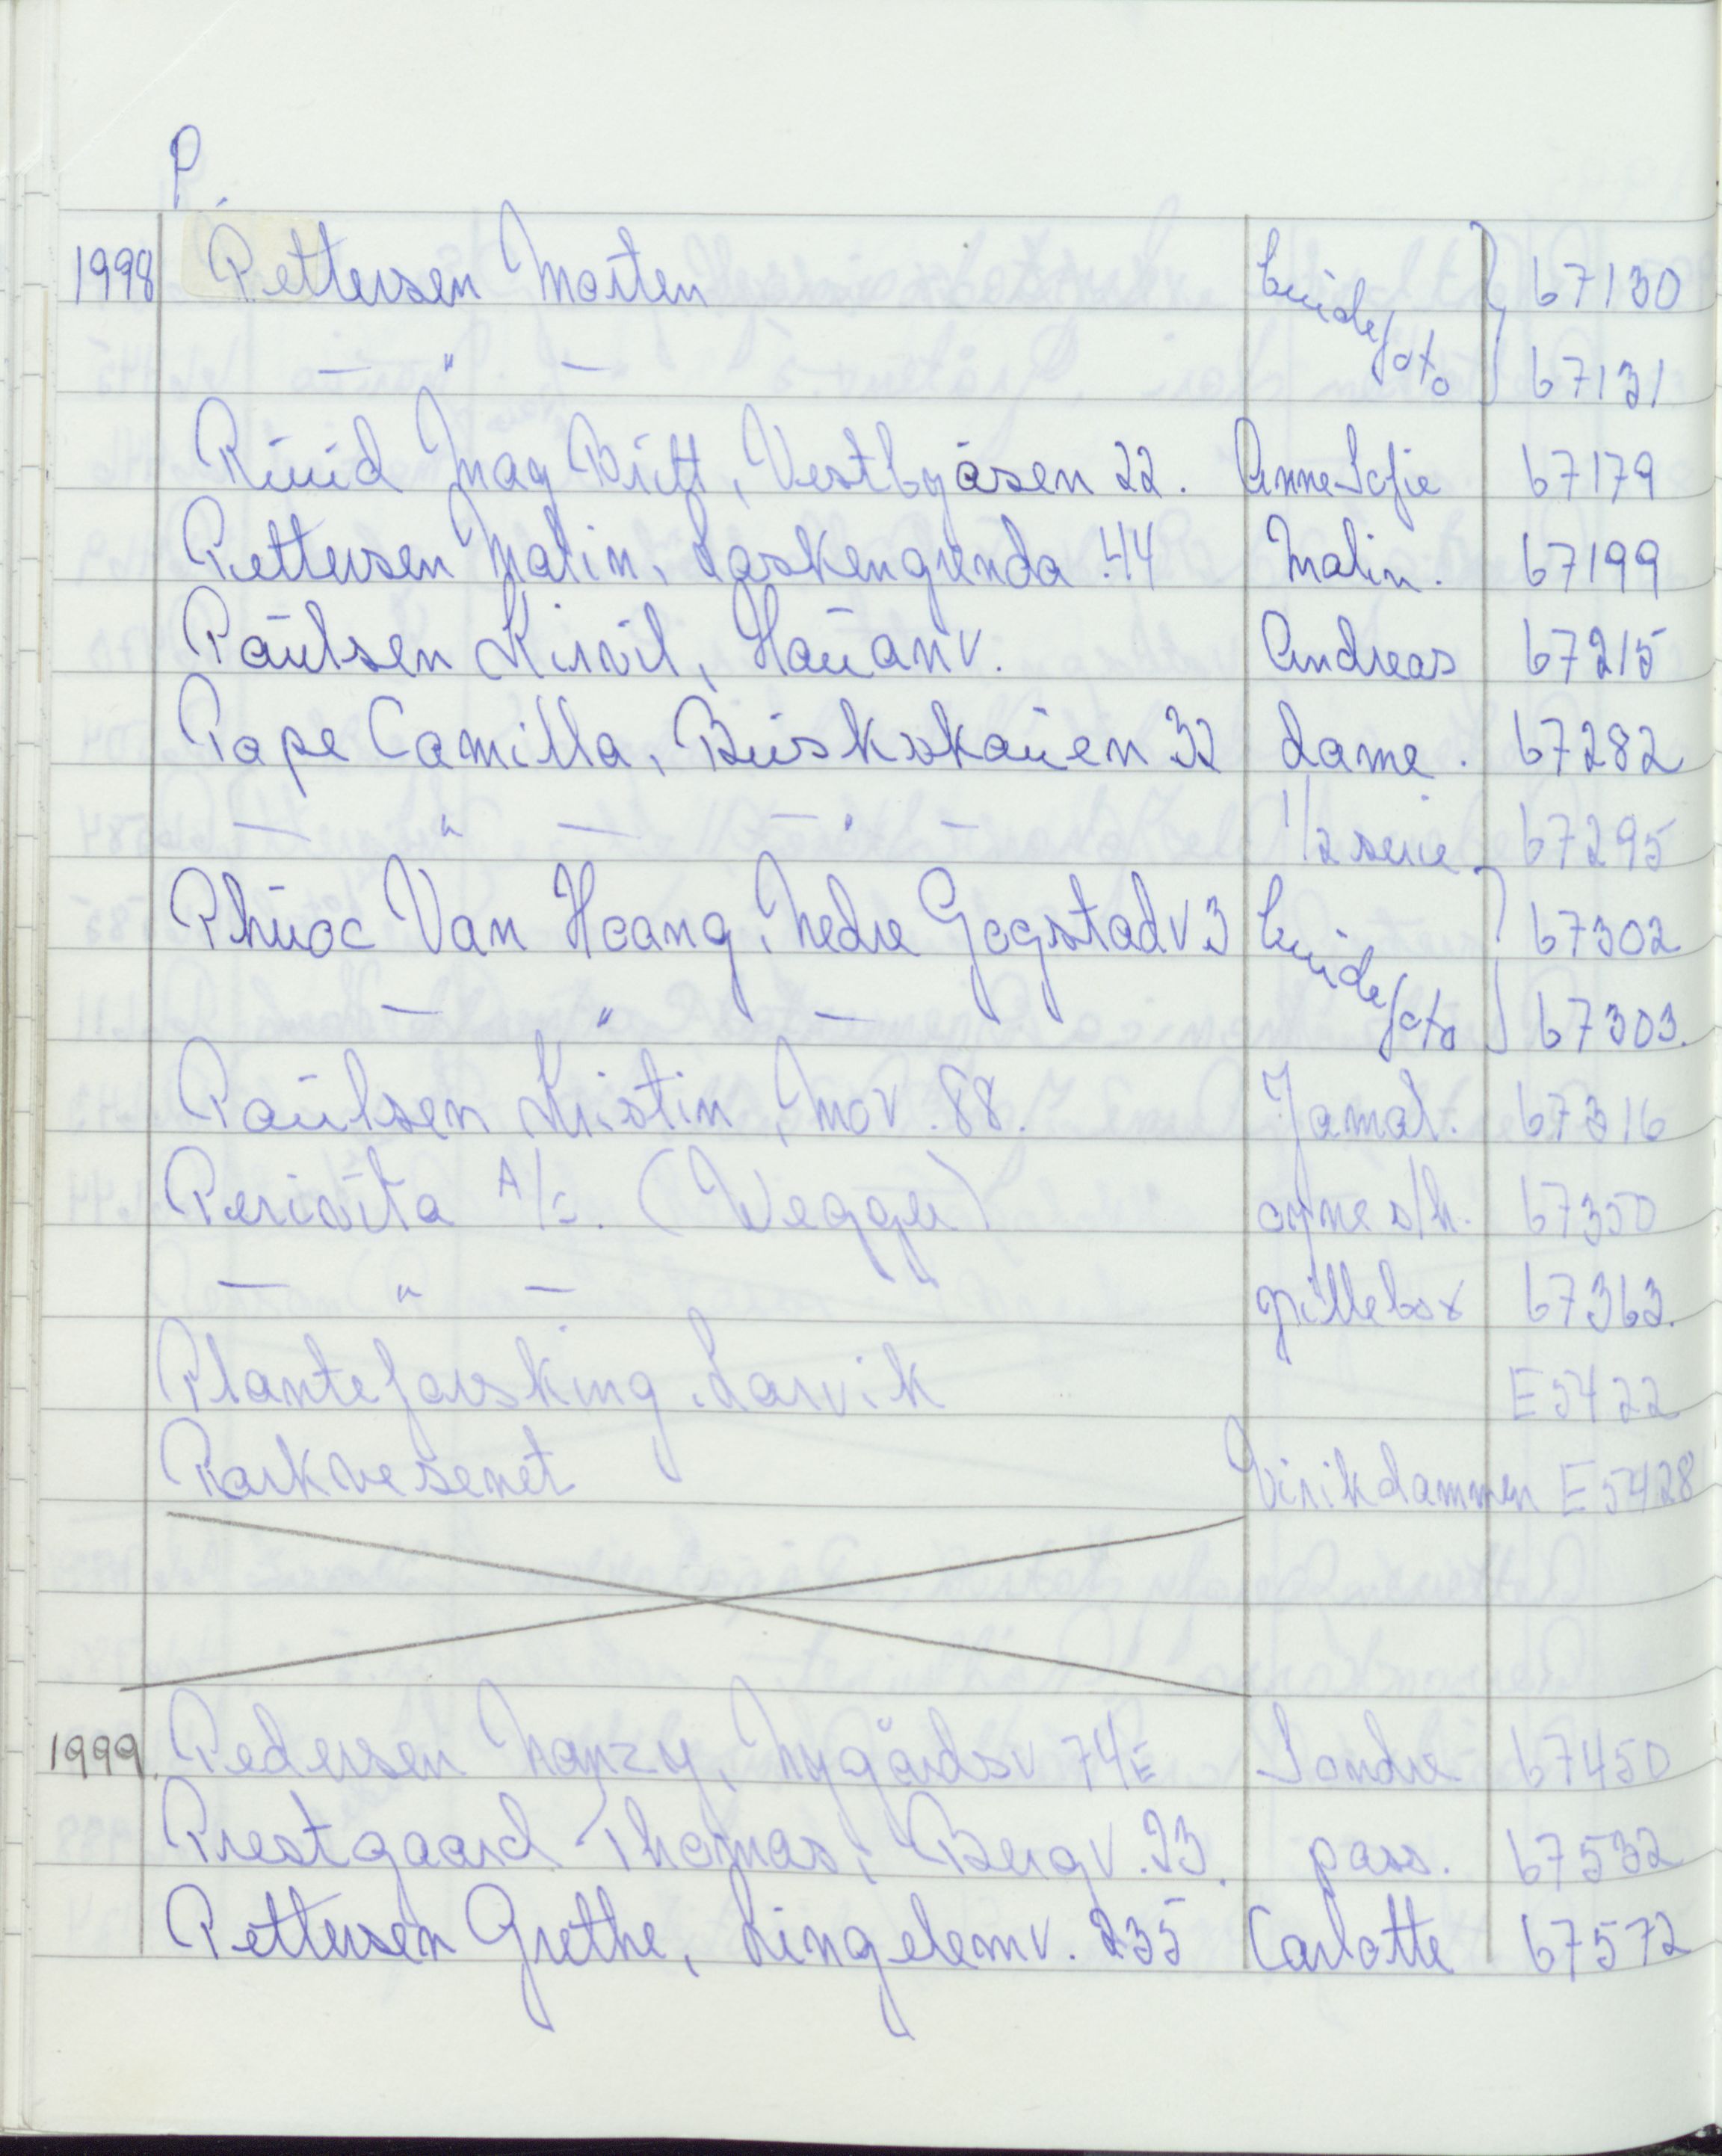 P.
1998 Pettersen Morten brudefoto 67130
— " — 67131
Ruud May Britt, Vestbyåsen 22. Anne Sofie 67179
Pettersen Malin, Laskengrenda 44 Malin. 67199
Paulsen Kirvil, Hauanv. Andreas 67215
Pape Camilla, Buskskauen 32 dame. 67282
— " — — " — 1/2 serie 67295
Phuoc Van Hoang, Nedre Gogstadv 3 brudefoto 67302
— " — 67303.
Paulsen Kristin, Mov. 88. Jamal. 67316
Perivita A/S. (Wegger) 67350
— " — pillebox 67363.
Planteforsking Larvik E5422
Parkvesenet Virikdammen E5428
1999. Pedersen Nanzy, Nygårdsv 74E Sondre 67450
Prestgaard Thomas, Bergv. 23. pass. 67532
Pettersen Grethe, Lingelemv. 235 Carlotte 67572